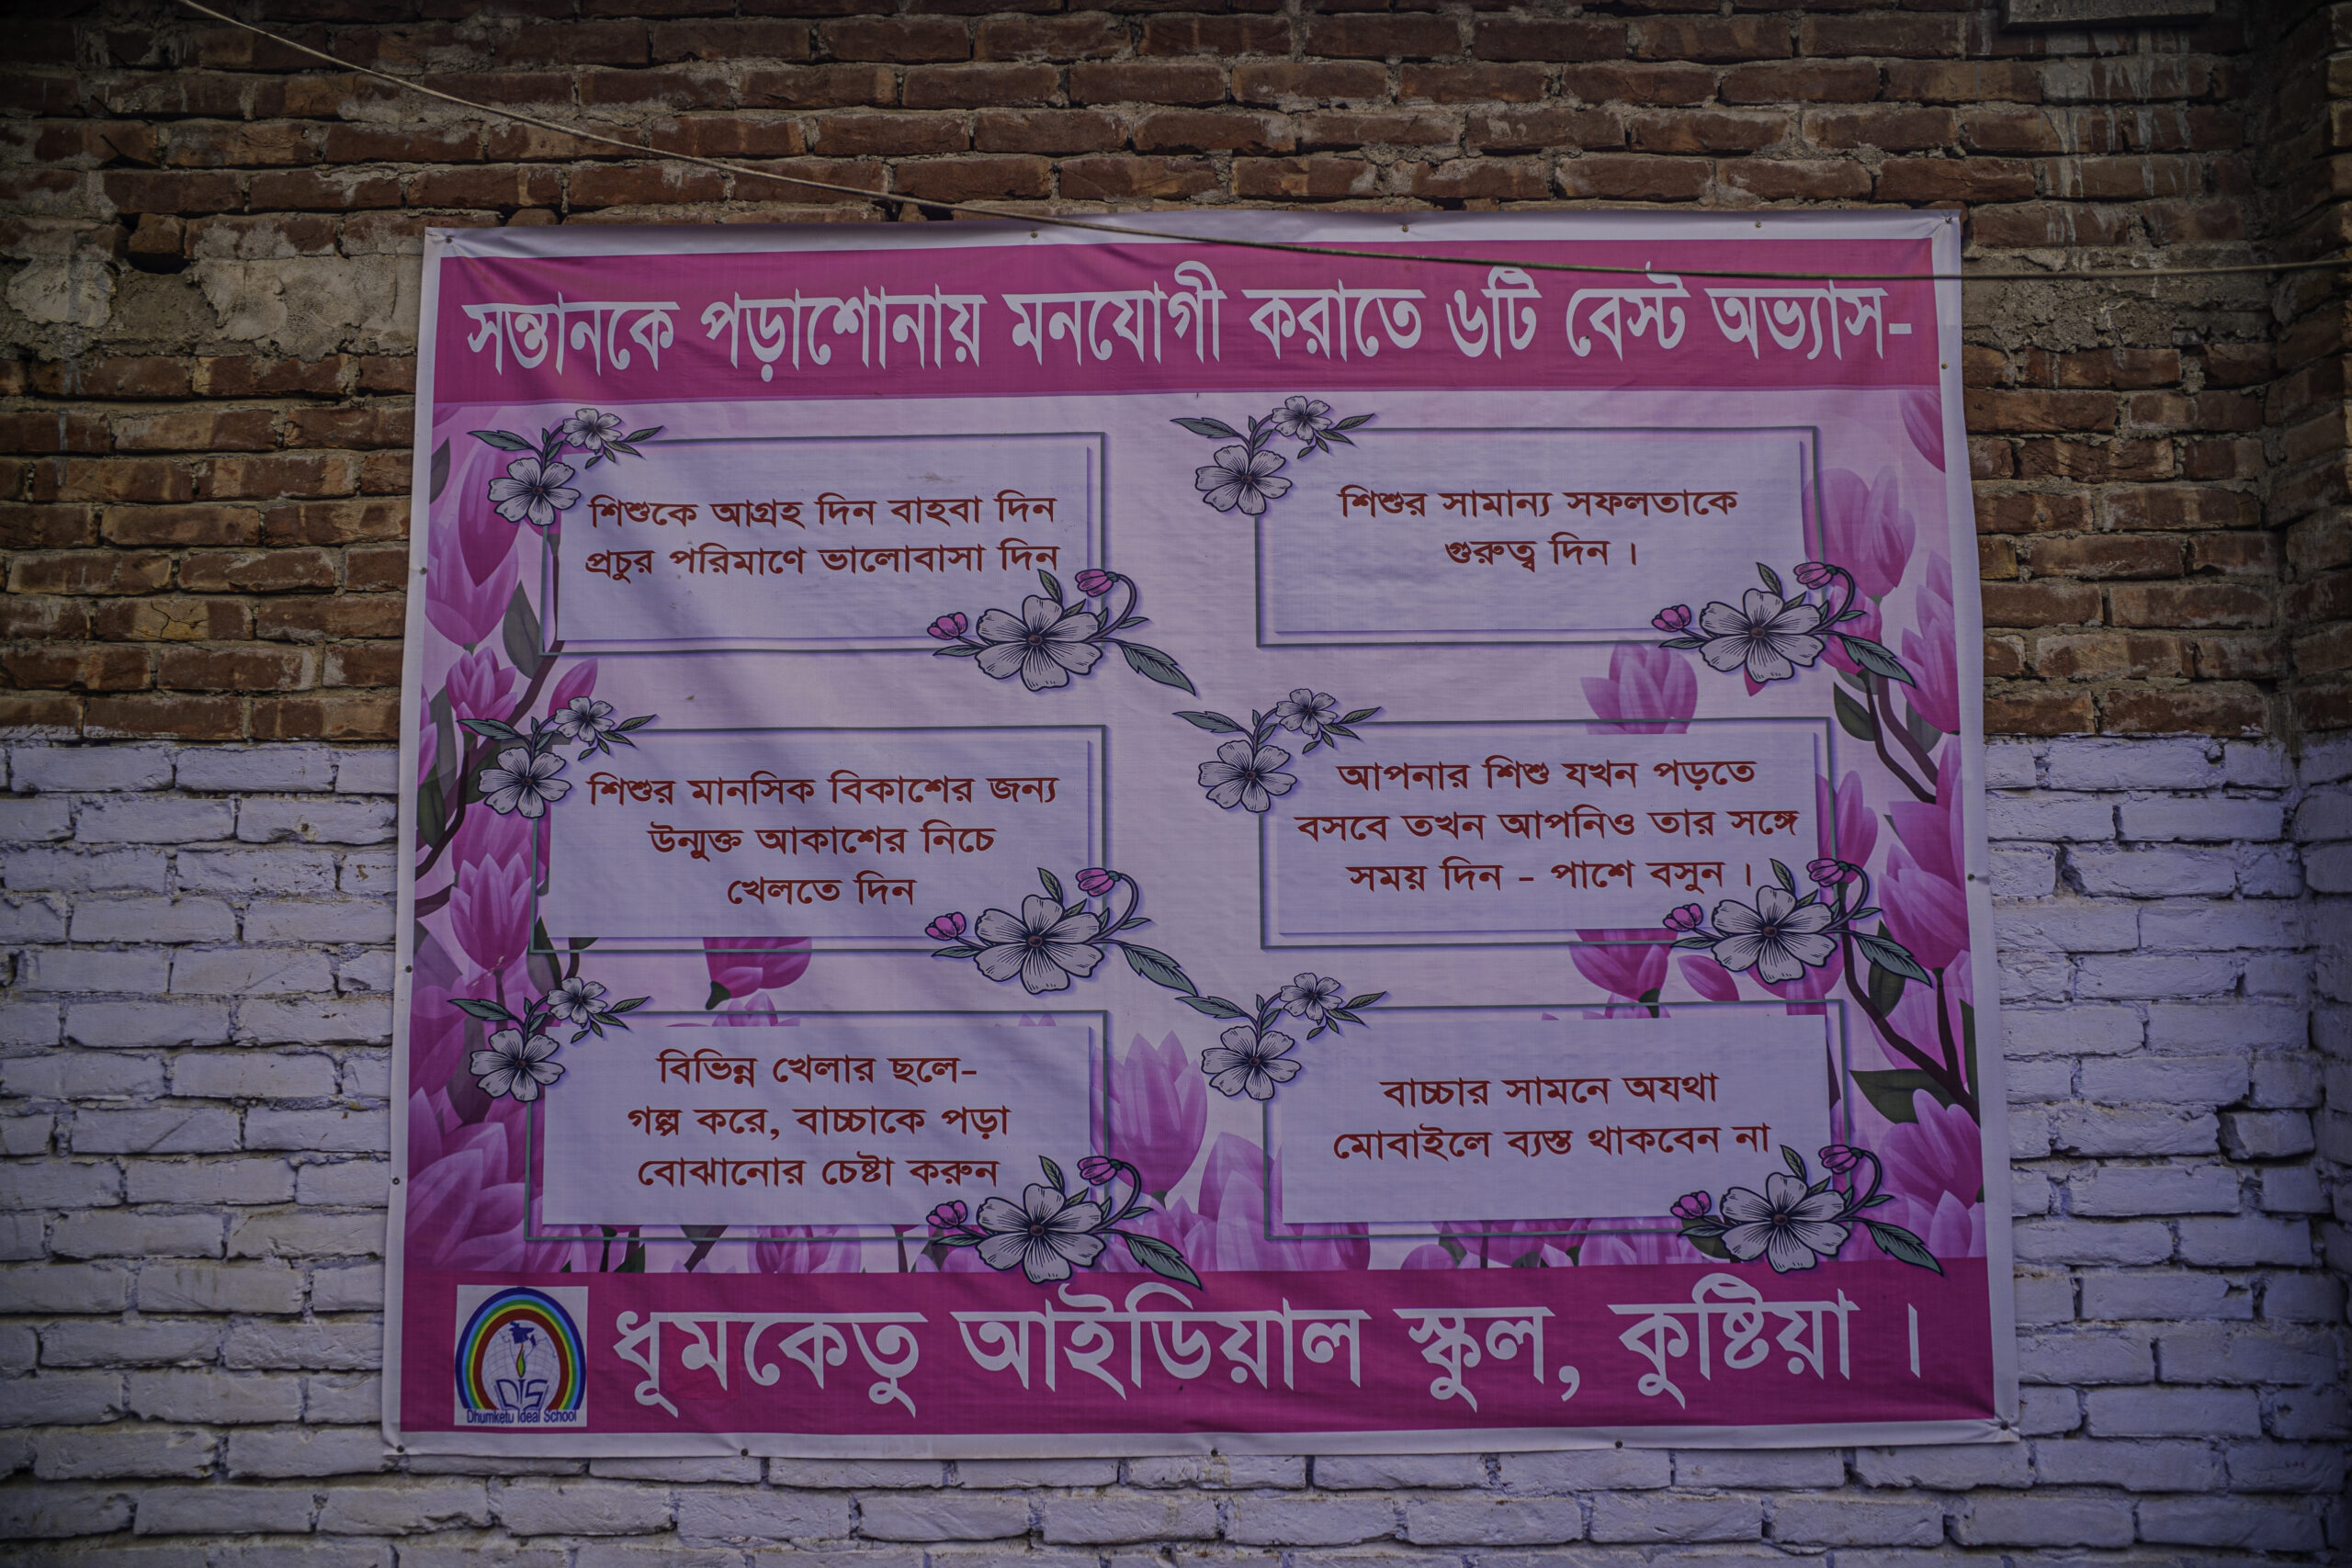 সন্তানকে পড়াশোনায় মনযোগী করাতে ৬টি বেস্ট অভ্যাস-
শিশুকে আগ্রহ দিন বাহবা দিন
প্রচুর পরিমাণে ভালোবাসা দিন
শিশুর সামান্য সফলতাকে
গুরুত্ব দিন ।
শিশুর মানসিক বিকাশের জন্য
উন্মুক্ত আকাশের নিচে
খেলতে দিন
আপনার শিশু যখন পড়তে
বসবে তখন আপনিও তার সঙ্গে
সময় দিন - পাশে বসুন ।
বিভিন্ন খেলার ছলে-
গল্প করে, বাচ্চাকে পড়া
বোঝানোর চেষ্টা করুন
বাচ্চার সামনে অযথা
মোবাইলে ব্যস্ত থাকবেন না
DIS
Dhumketu Ideal School
ধূমকেতু আইডিয়াল স্কুল, কুষ্টিয়া ।